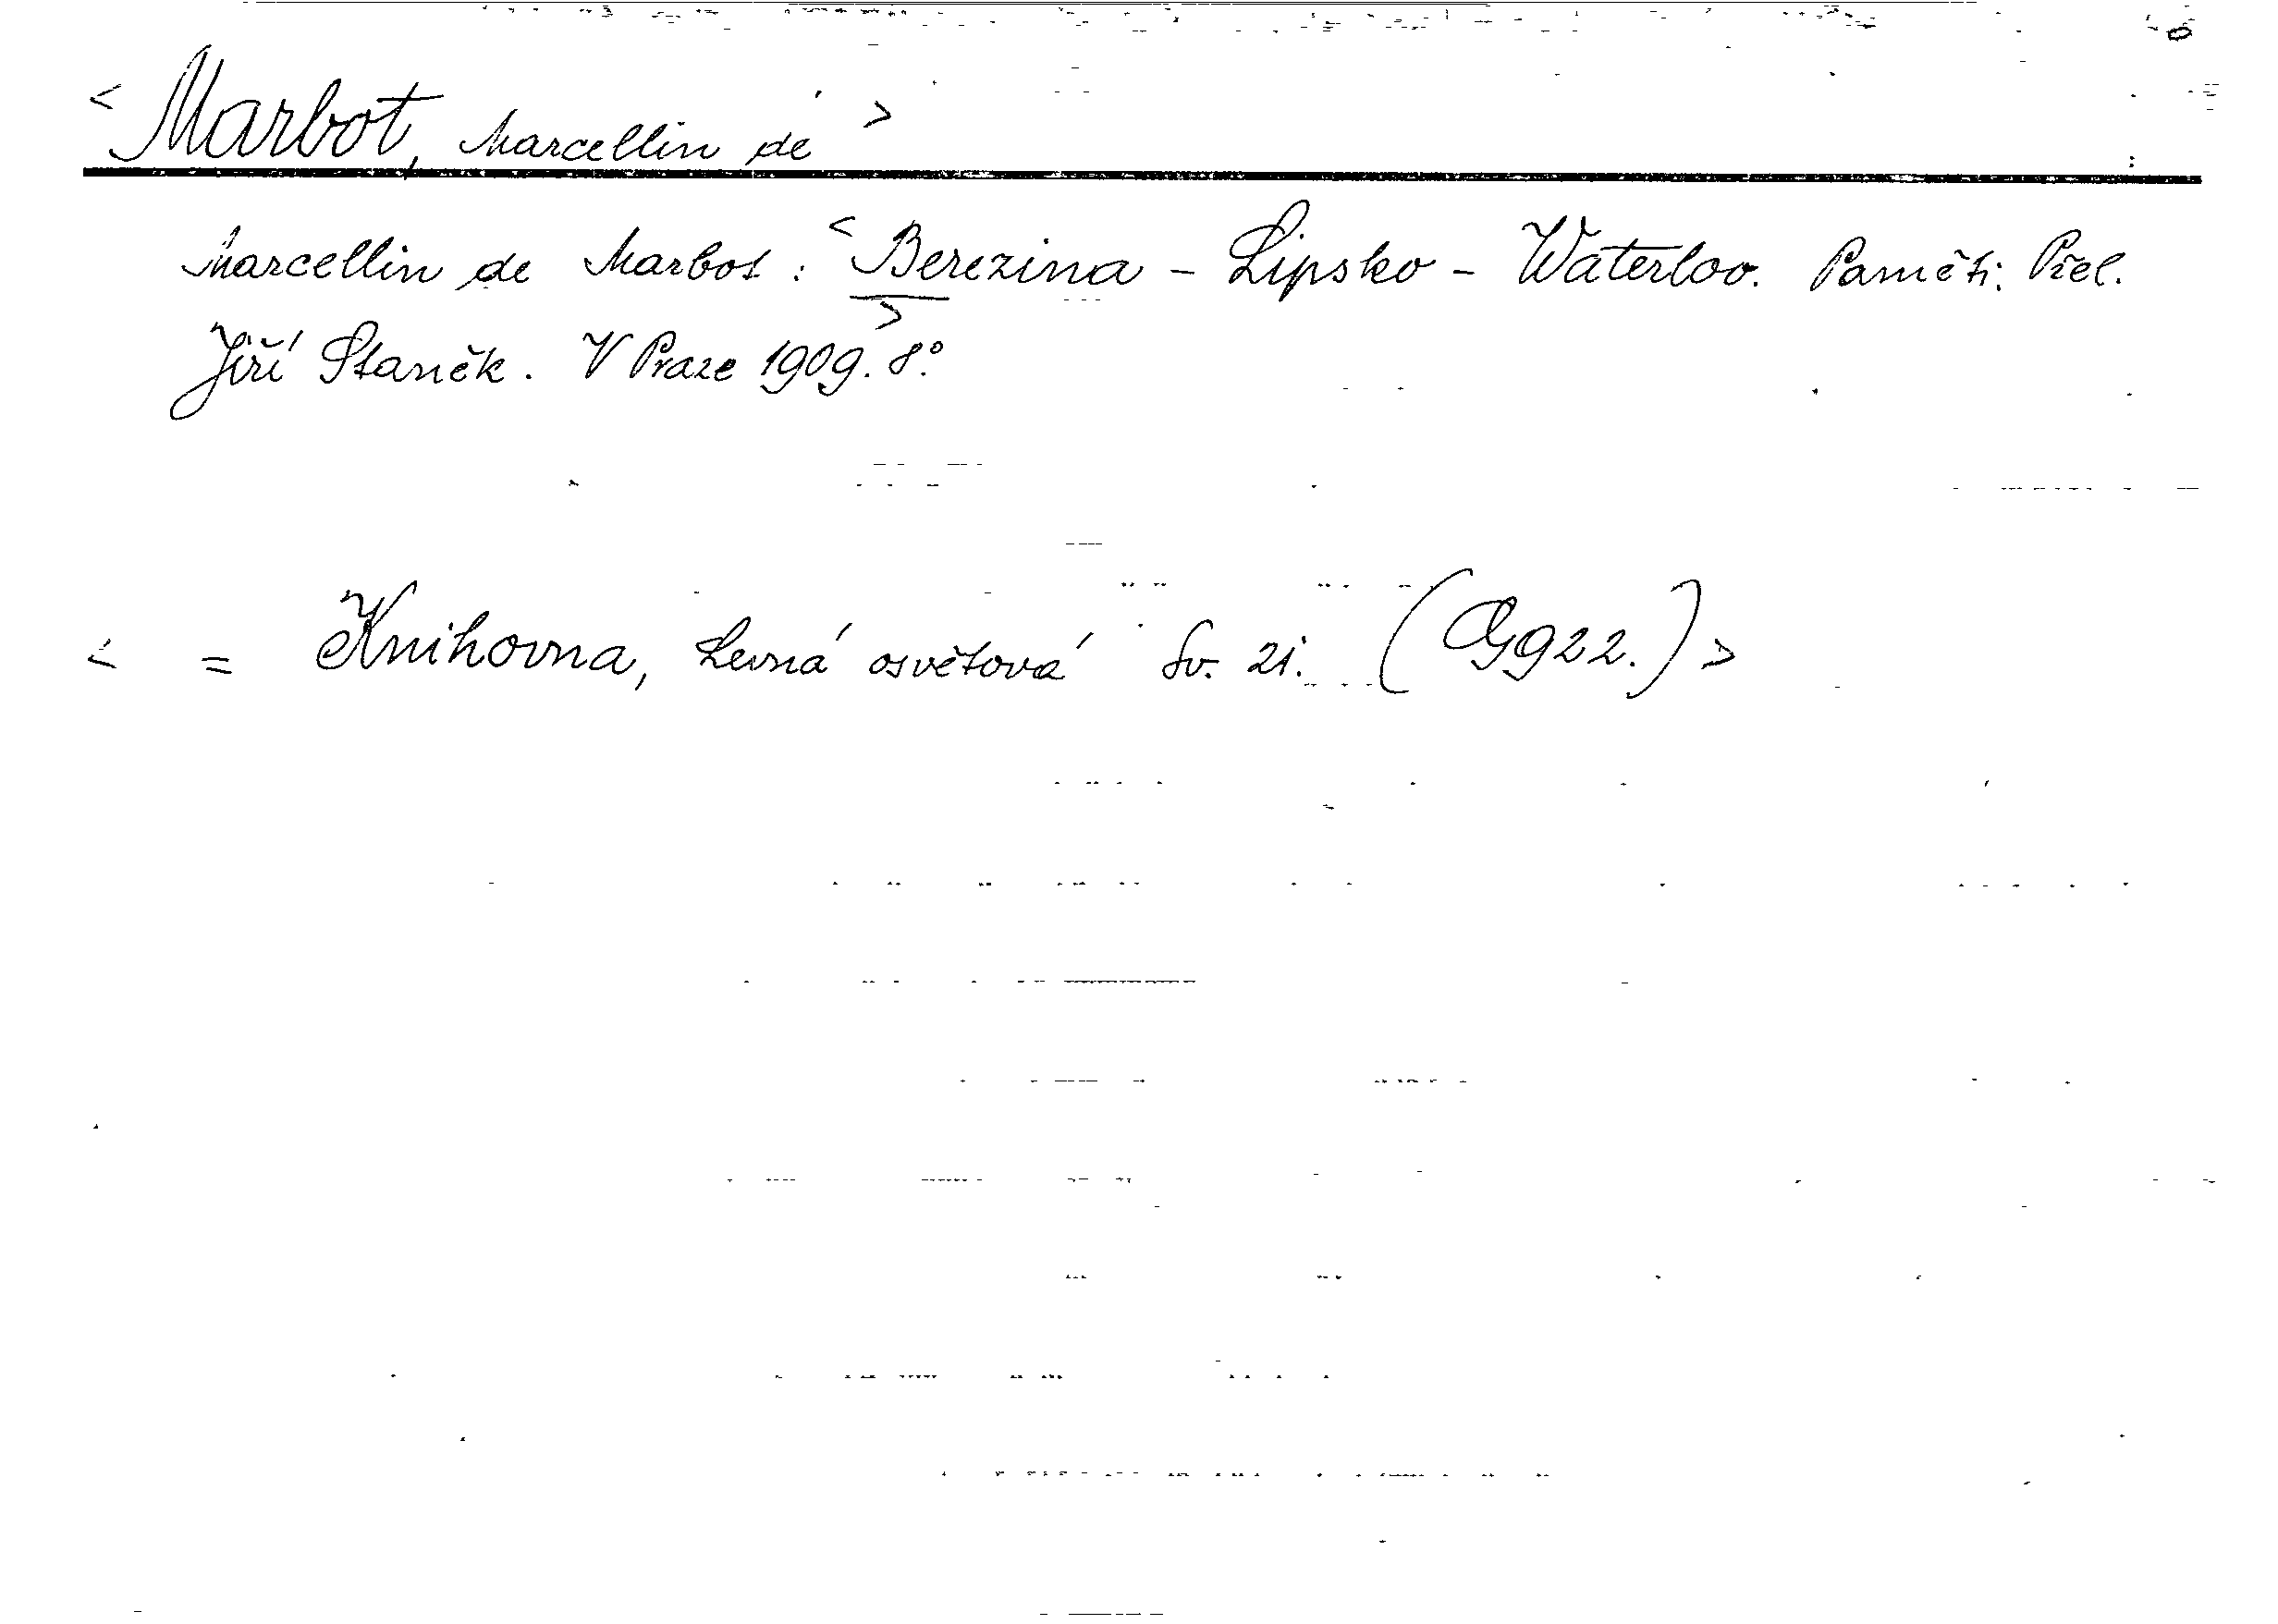 < Marbot, Marcellin de >
Marcellin de Marbot: <Berezina - Lipsko - Waterloo. Paměti. Přel.
> Jiří Staněk. V Praze 1909. 8.°
< = Knihovna, Levná osvětová Sv. 21. (Gg 22.) >